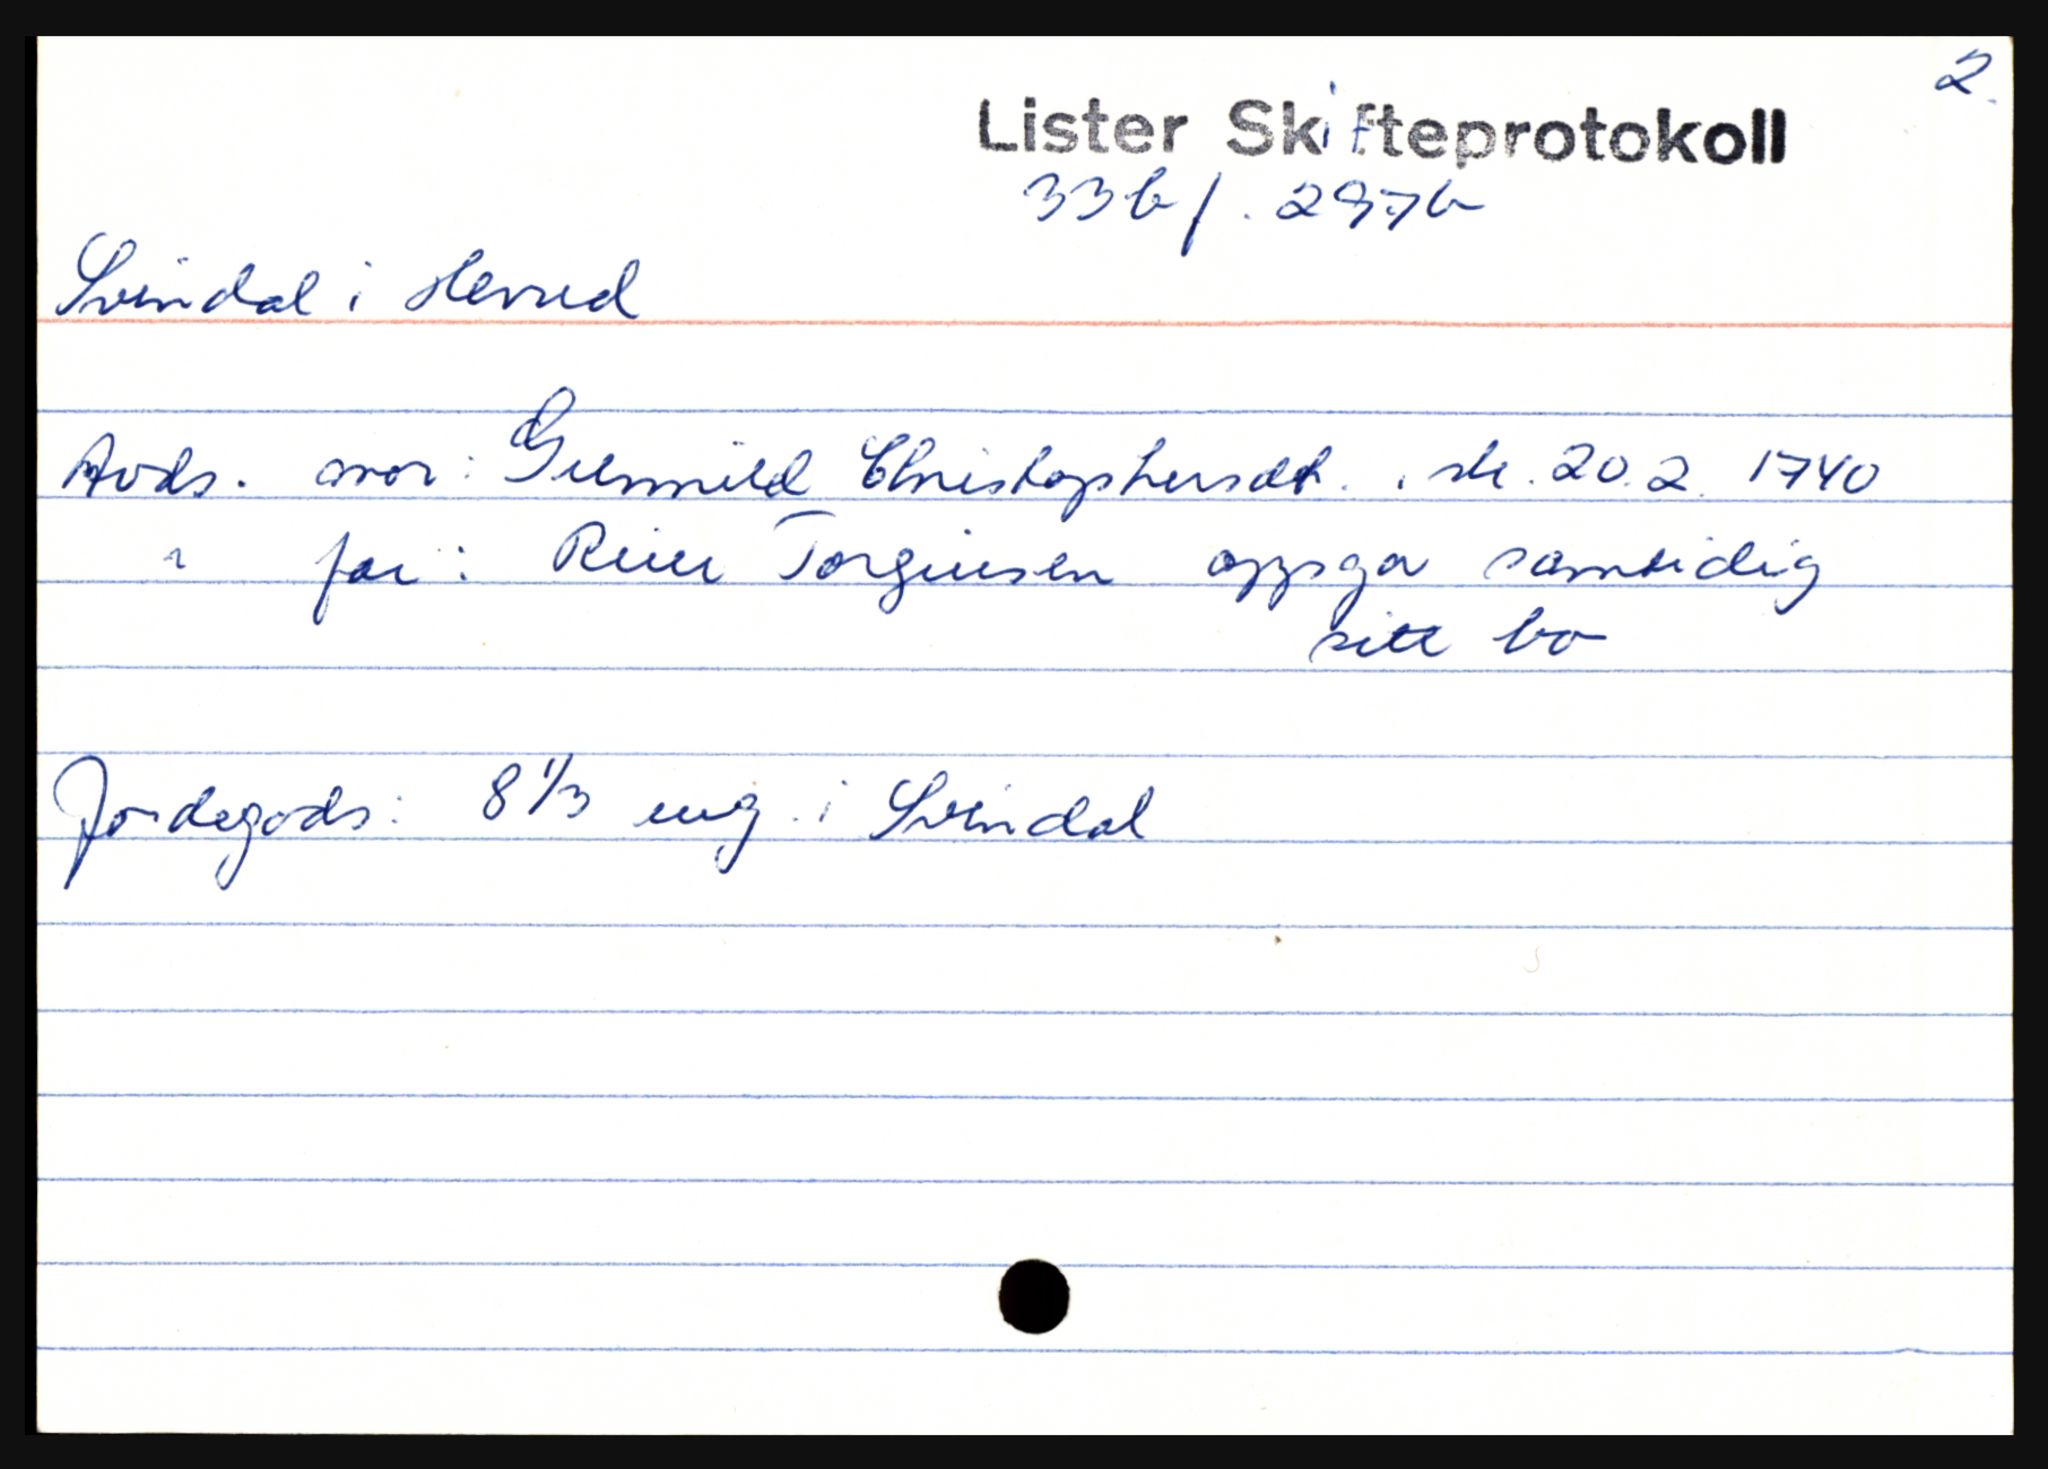 2.
Lister Skifteprotokoll
33b f. 297b
Svindal i Herred
Avds. mor: Gunnild Christophersdt. sk. 20.2. 1740
" far: Reier Torgiusen oppga samtidig
sitt bo
Jordegods: 8 1/3 eng. i Svindal